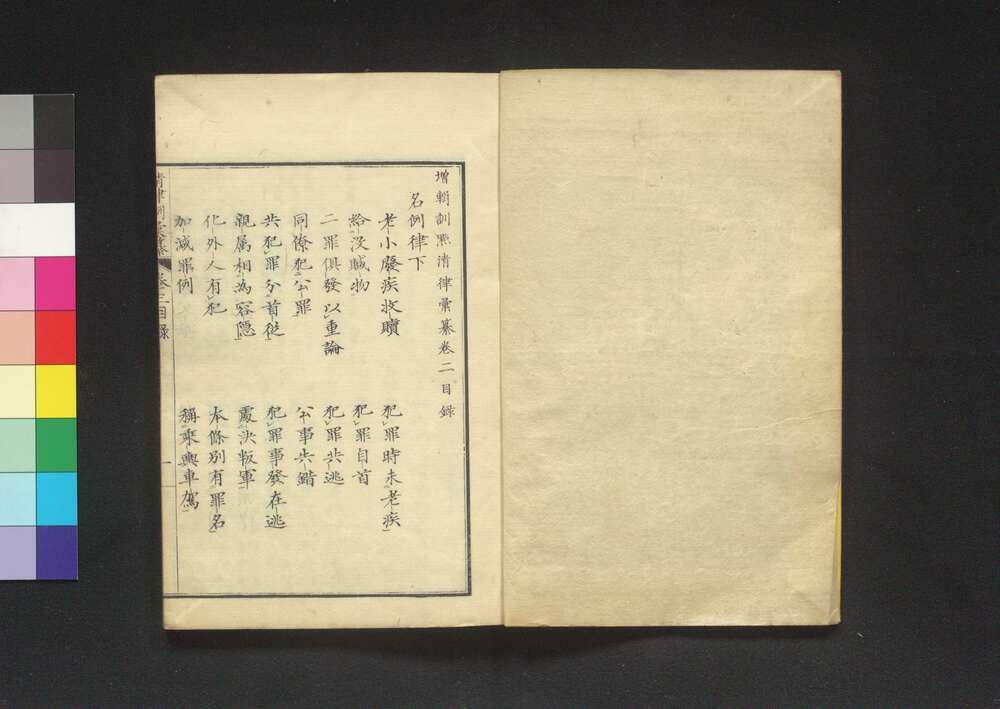 增輯訓點清律彙纂卷二 目錄
名例律下
老小廢疾收贖
犯罪時未老疾
給沒贓物
犯罪自首
二罪俱發以重論
犯罪共逃
同僚犯公罪
公事失錯
共犯罪分首從
犯罪事發在逃
親属相為容隱
處決叛軍
化外人有犯
本條別有罪名
加減罪例
稱乘輿車駕
卷二目錄
一